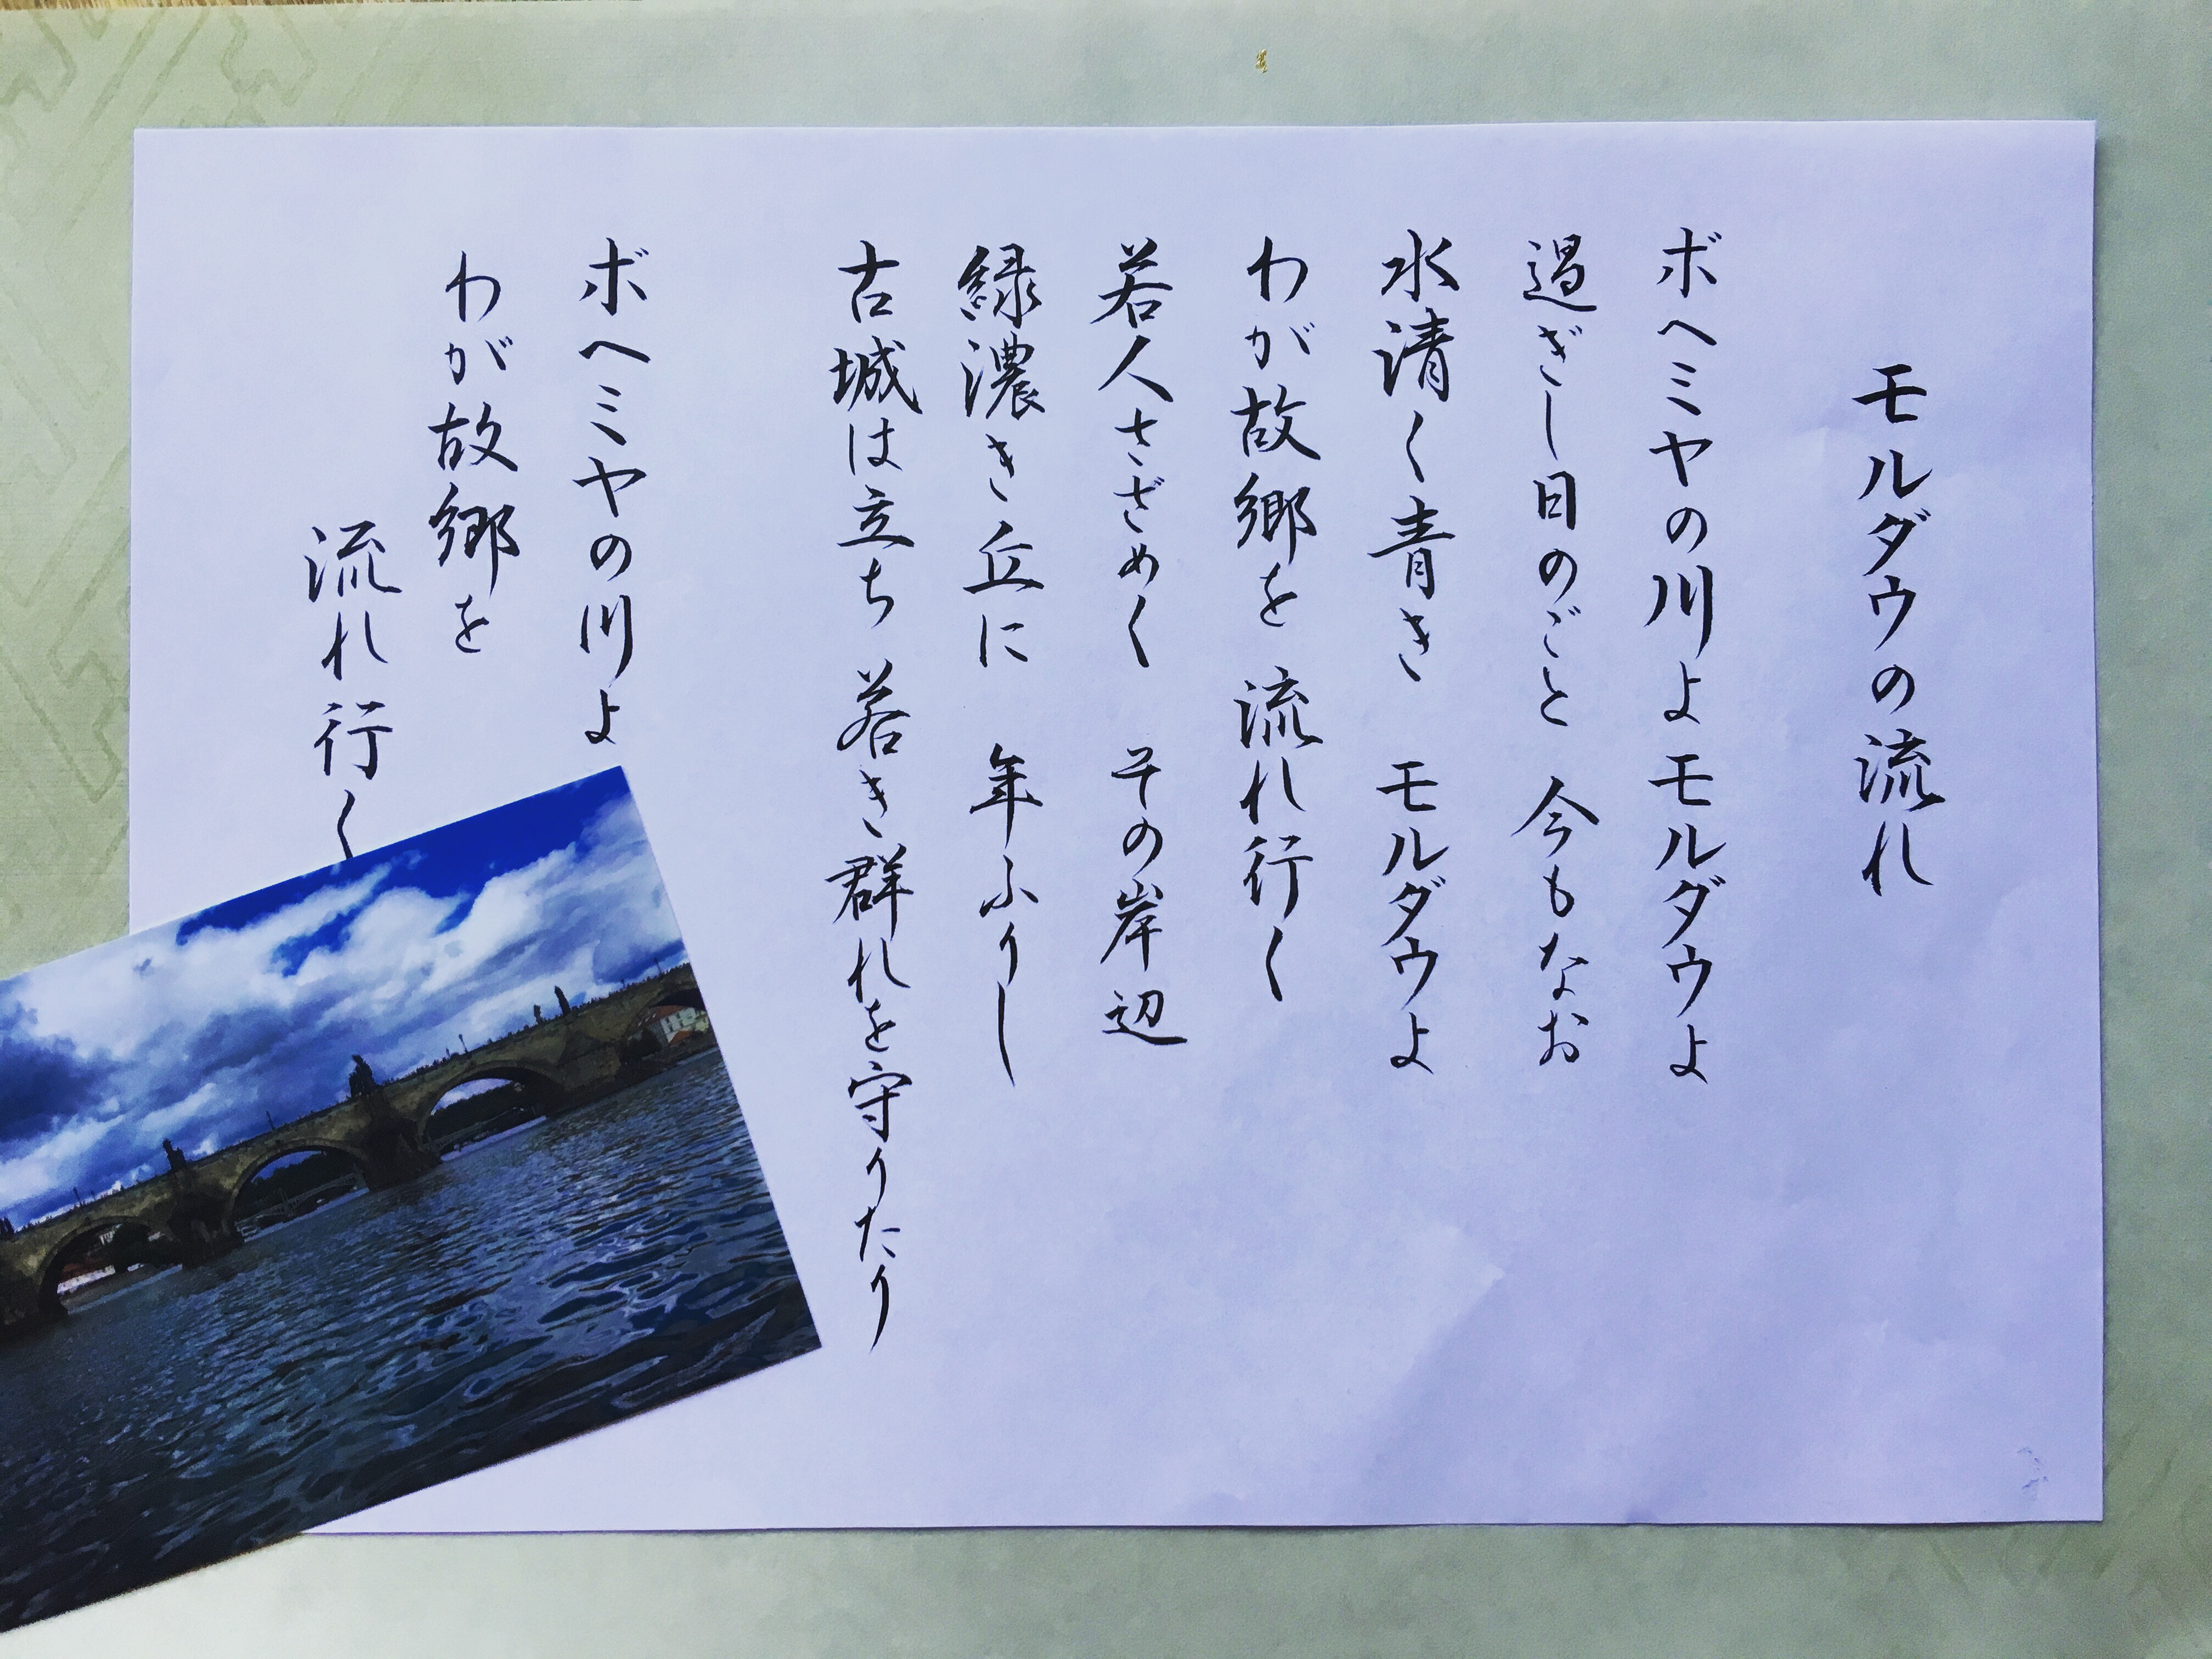 モルダウの流れ
ボヘミヤの川よ モルダウよ
過ぎし日のごと 今もなお
水清く青き モルダウよ
わが故郷を 流れ行く
若人さざめく その岸辺
緑濃き丘に 年ふりし
古城は立ち 若き群れを守りたり
ボヘミヤの川よ
わが故郷を
流れ行く